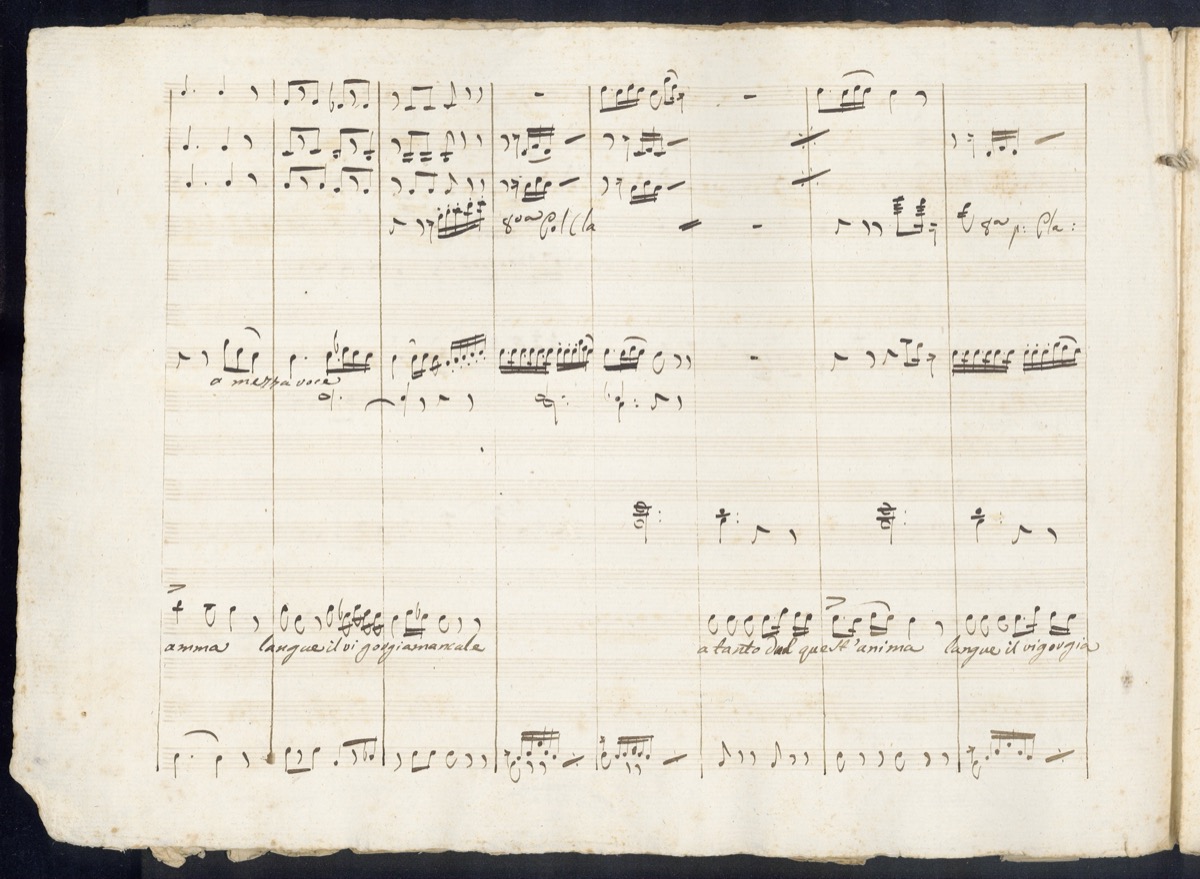 8va Col Cla
8a p: Cla:
a mezza voce
amma langue il vigor gia mancale a tanto duol quest'anima langue il vigor gia